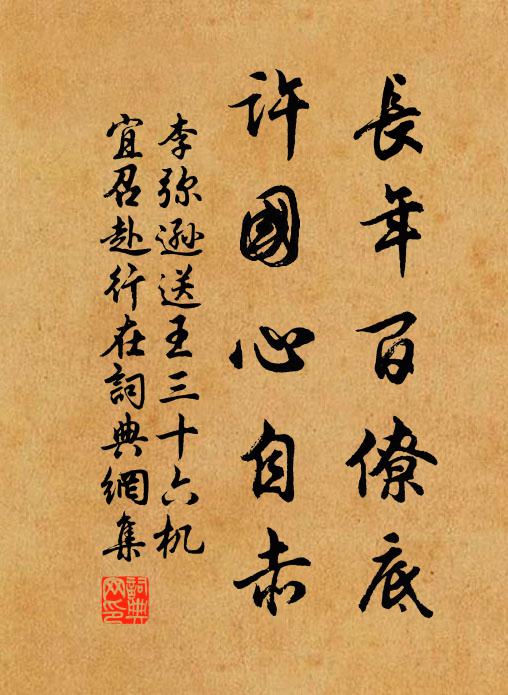 長年百僚底
許國心自赤
李弥遜送王三十六机
宜召赴行在詞典網集
詞典網印